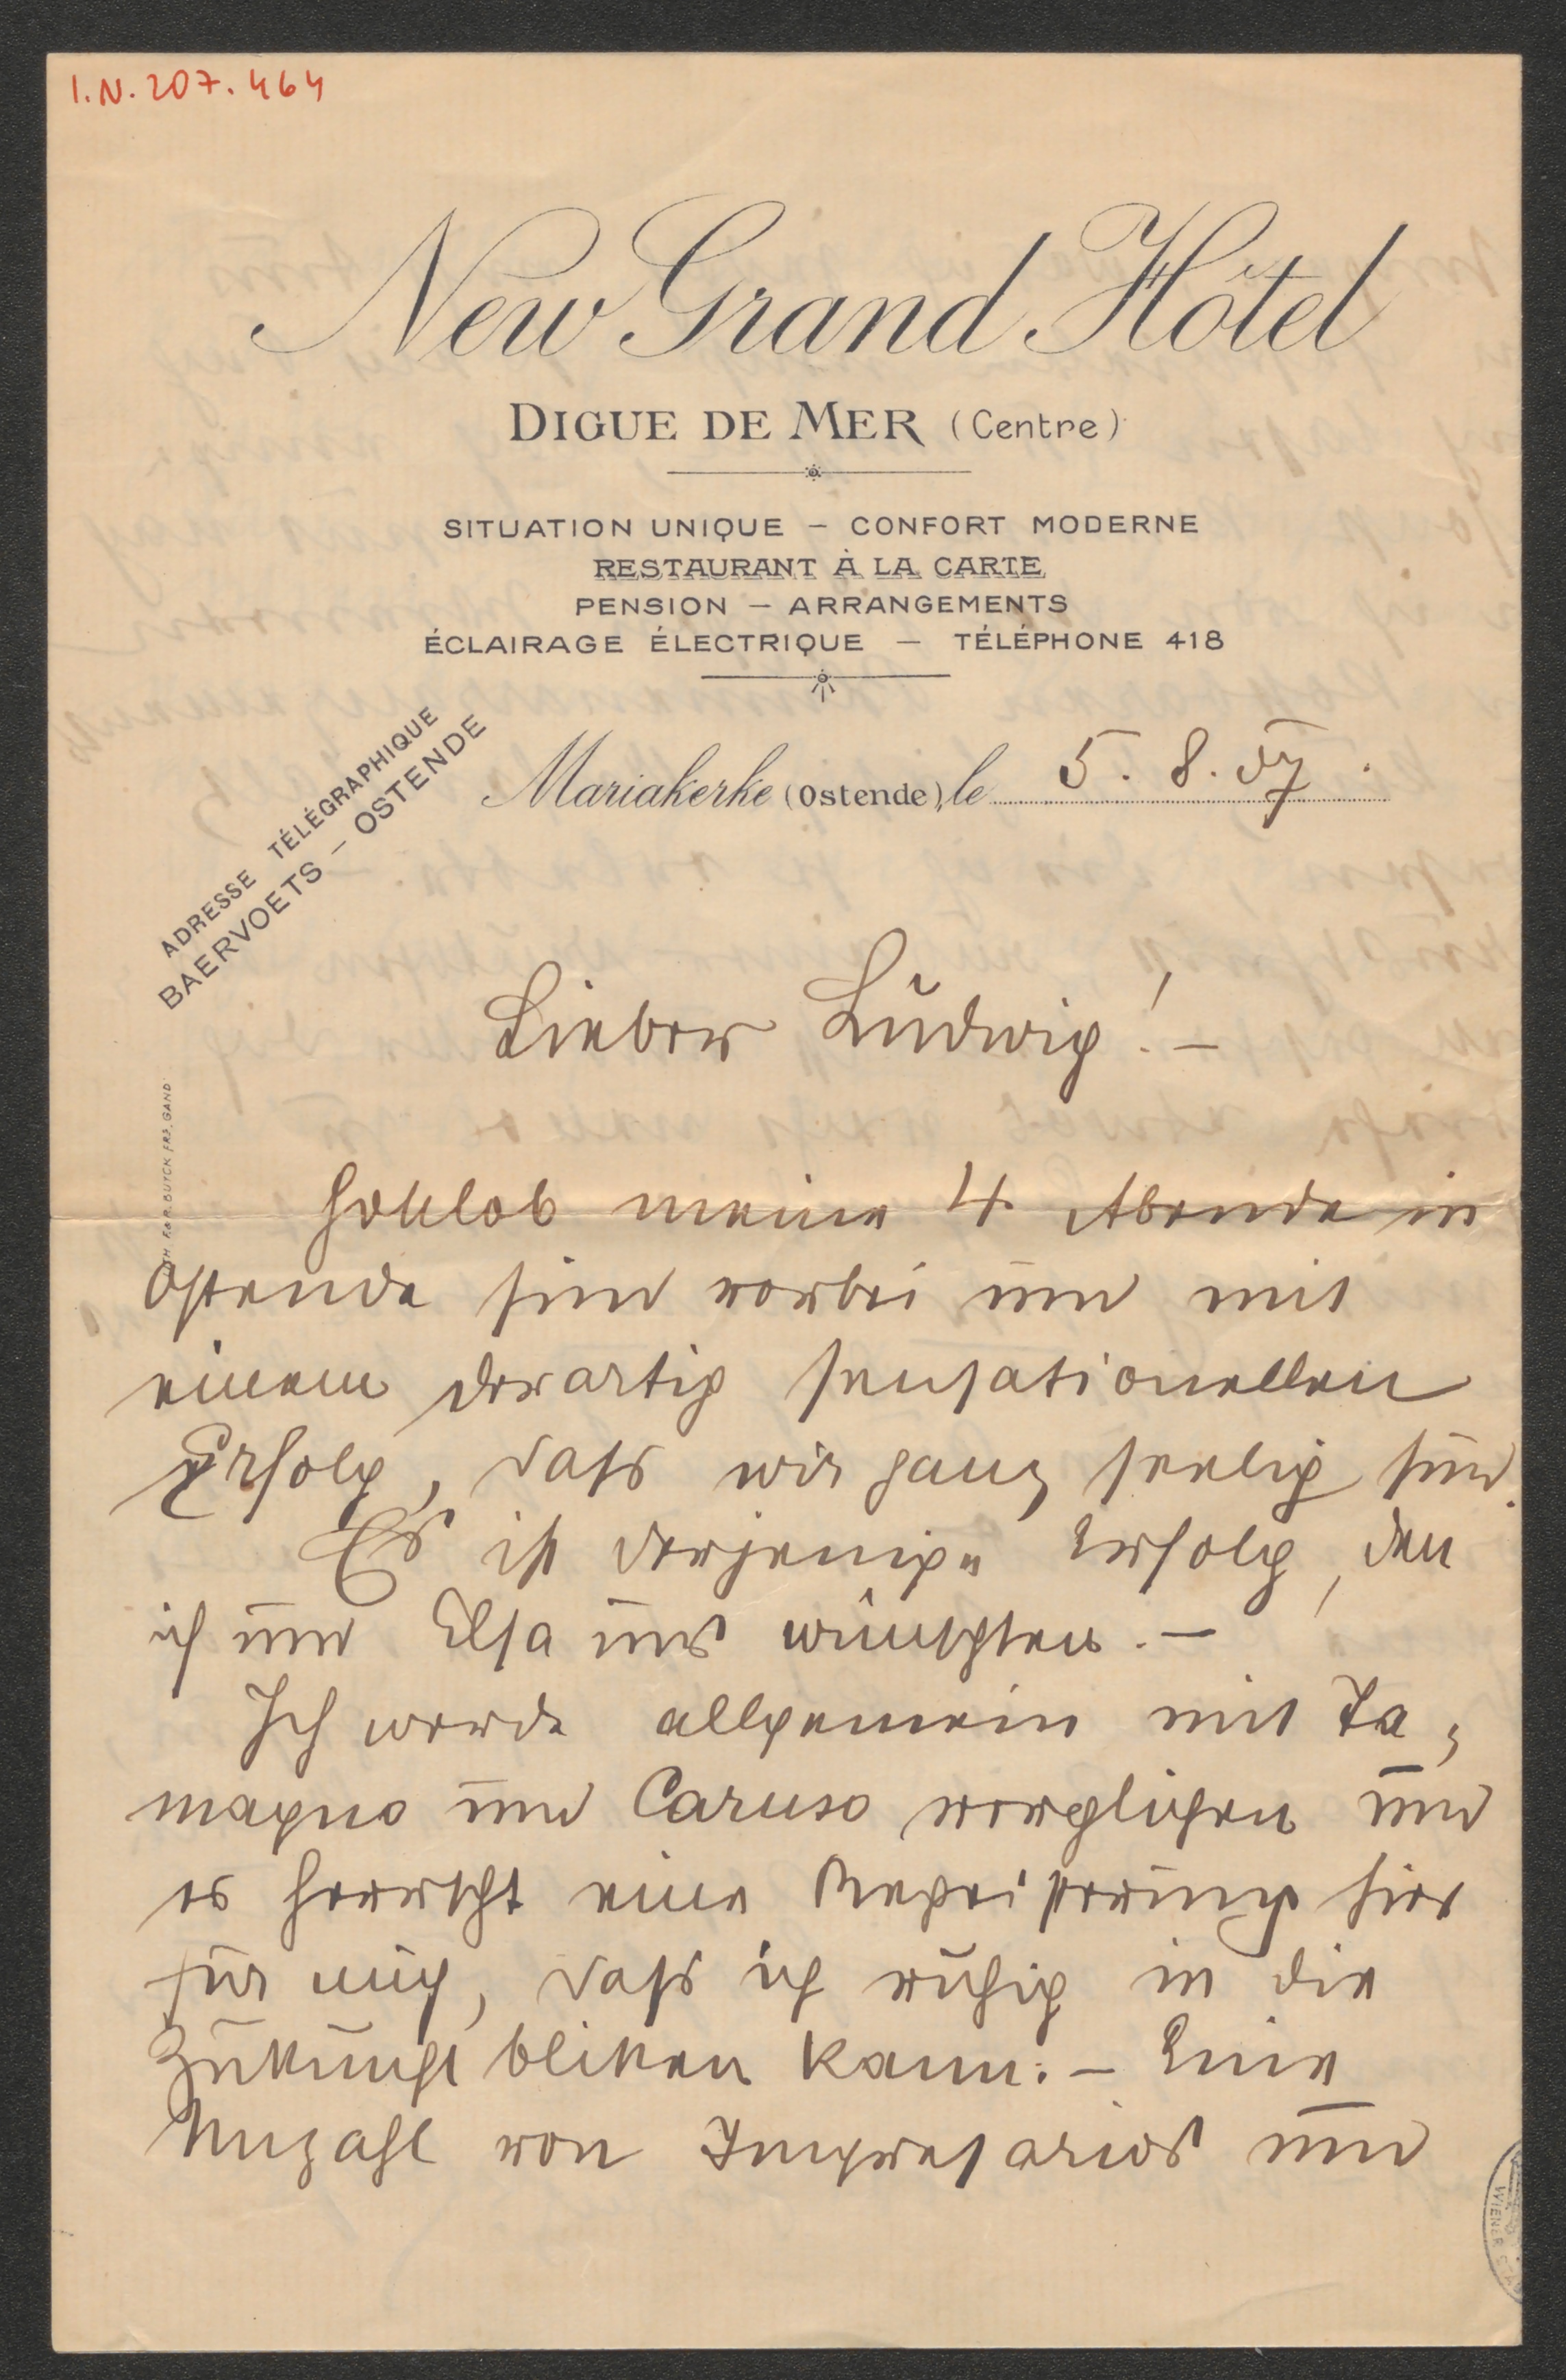 I.N. 207.464
New Grand Hôtel
DIGUE DE MER (Centre)
SITUATION UNIQUE – CONFORT MODERNE
RESTAURANT À LA CARTE
PENSION – ARRANGEMENTS
ÉCLAIRAGE ÉLECTRIQUE – TÉLÉPHONE 418
ADRESSE TÉLÉGRAPHIQUE
BAERVOETS – OSTENDE
Mariakerke (Ostende), le 5. 8. 07.
R & R. BUYCK FRS, GAND
Lieber Ludwig! –
Gottlob meine 4 Abende in
Ostende sind vorbei und mit
einem derartig sensationellen
Erfolg, dass wir ganz seelig sind.
Es ist derjenige Erfolg, den
ich und Elsa uns wünschten. –
Ich werde allgemein mit Ta-
magno und Caruso verglichen und
es herrscht eine Begeisterung hier
für mich, dass ich ruhig in die
Zukunft bliken kann. – Eine
Anzahl von Impresarios und
WIENER